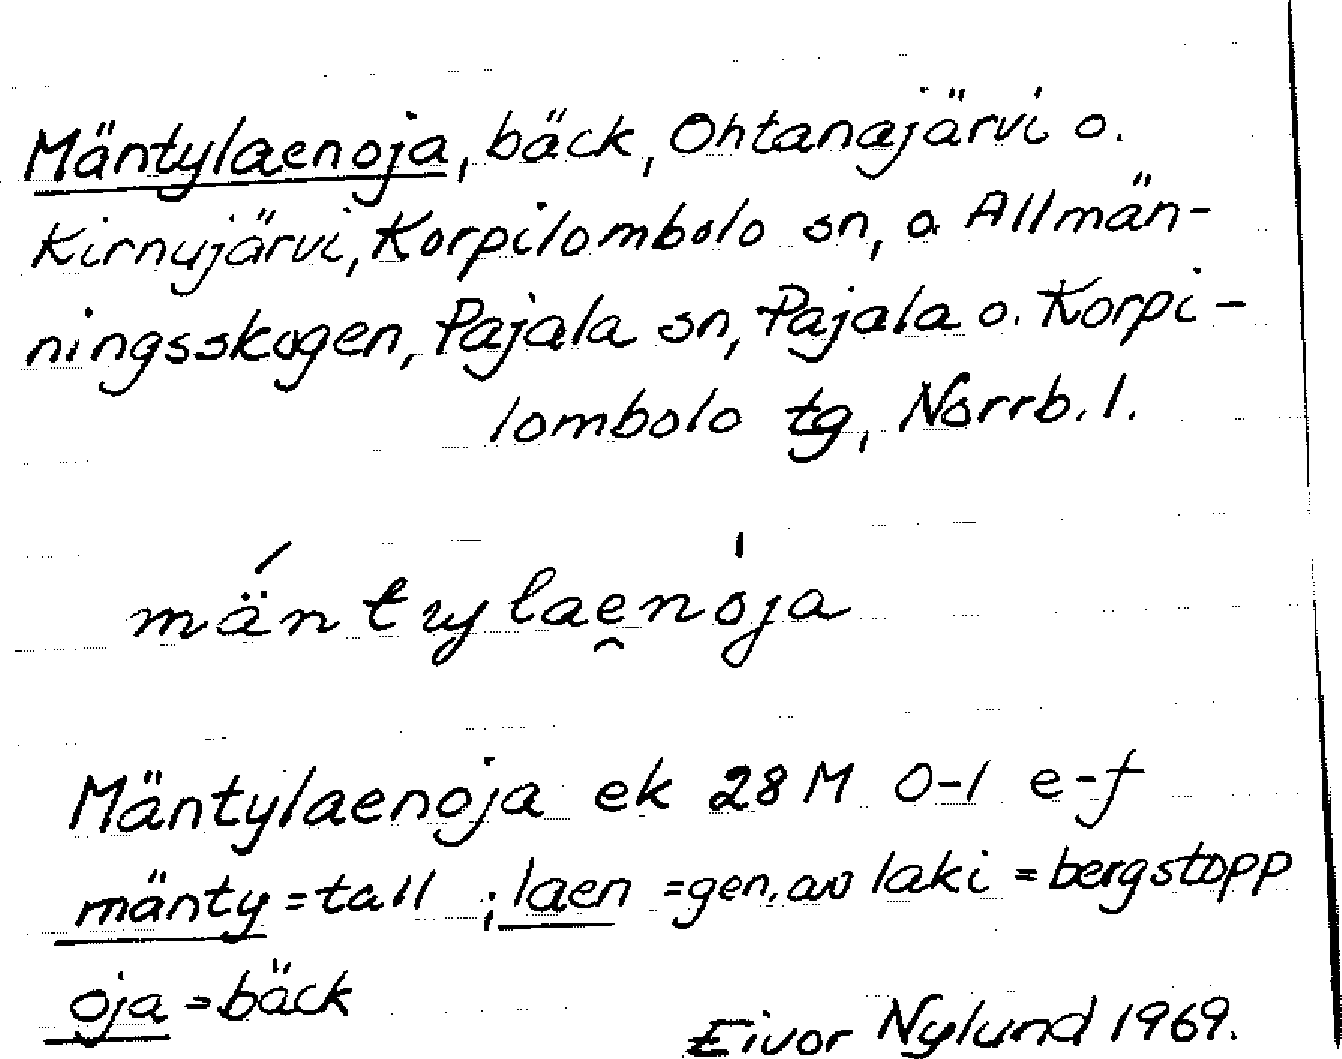 Mäntylaenoja, bäck, Ohtanajärvi o.
Kirnujärvi, Korpilombolo sn, o. Allmän-
ningsskogen, Pajala sn, Pajala o. Korpi-
lombolo tg, Norrb. l.
mäntylaenoja
Mäntylaenoja ek 28 M 0-1 e-f
mänty = tall ; laen = gen. av laki = bergstopp
oja = bäck
Eivor Nylund 1969.